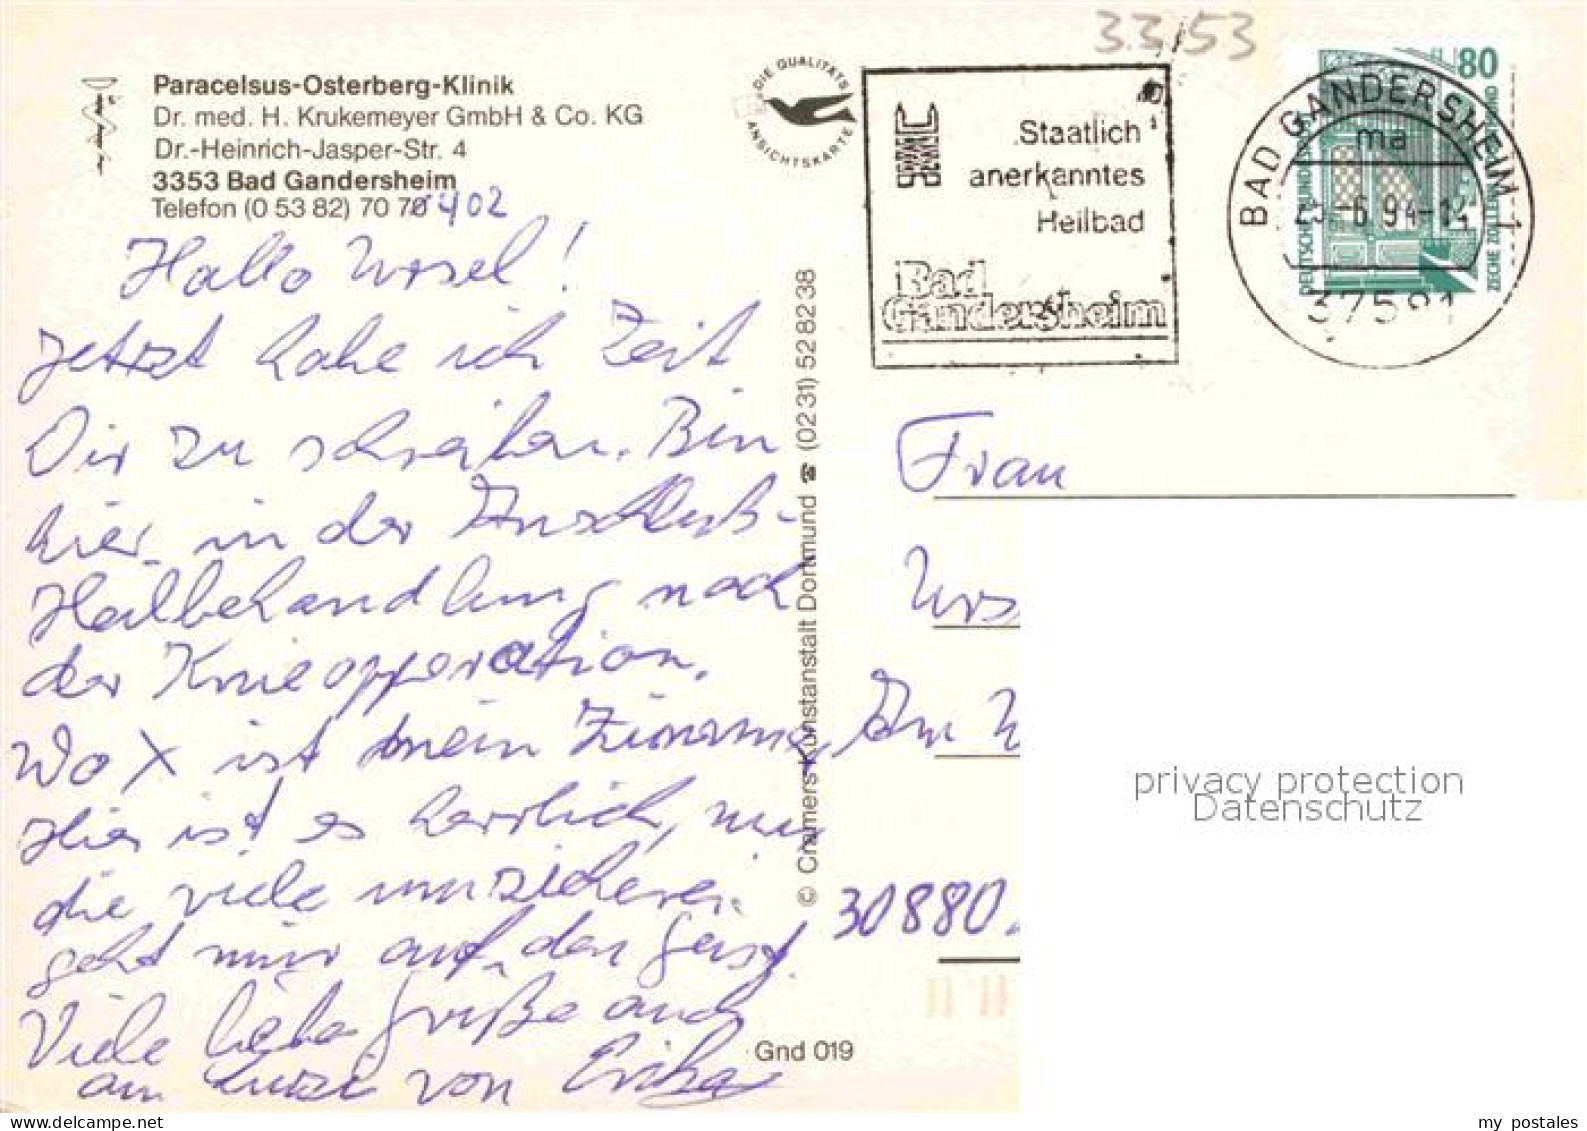 3.3./53
Paracelsus-Osterberg-Klinik
Dr. med. H. Krukemeyer GmbH & Co. KG
Dr.-Heinrich-Jasper-Str. 4
3353 Bad Gandersheim
Telefon (0 53 82) 70 70 402
Hallo Ursel!
Jetzt habe ich Zeit
Dir zu schreiben. Bin
hier in der Anschluß-
Heilbehandlung nach
der Knieopperation.
Wo X ist mein Zimmer,
Hier ist es herrlich, nur
die viele
geht mir auf den Geist.
Viele liebe Grüße auch
an von Erika
© Cramers Kunstanstalt Dortmund ☎ (02 31) 52 82 38
Gnd 019
DIE QUALITÄTS
ANSICHTSKARTE
Staatlich
anerkanntes
Heilbad
Bad
Gandersheim
80
DEUTSCHE BUNDESPOST
ZECHE ZOLLERN II DORTMUND
BAD GANDERSHEIM 1
ma
-6.94-
37581
Frau
Urs
Am
30880
privacy protection
Datenschutz
my postales